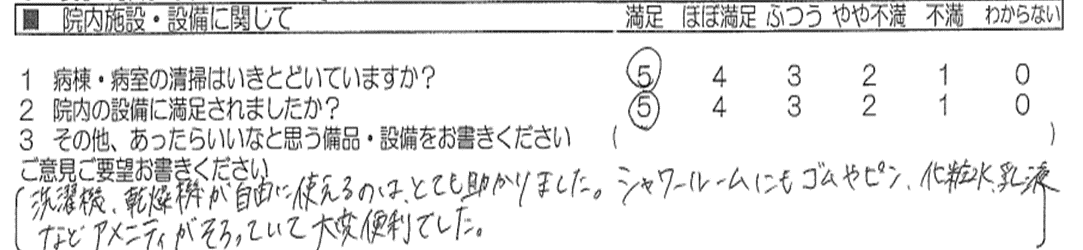 ■ 院内施設・設備に関じて 満足 ほぼ満足 ふつう やや不満 不満 わからない
1 病棟・病室の清掃はいきとどいていますか？ 5 4 3 2 1 0
2 院内の設備に満足されましたか？ 5 4 3 2 1 0
3 その他、あったらいいなと思う備品・設備をお書きください ( )
ご意見ご要望お書きください
洗濯機、乾燥機が自由に使えるのは、とても助かりました。シャワールームにもゴムやピン、化粧水、乳液
などアメニティがそろっていて大変便利でした。